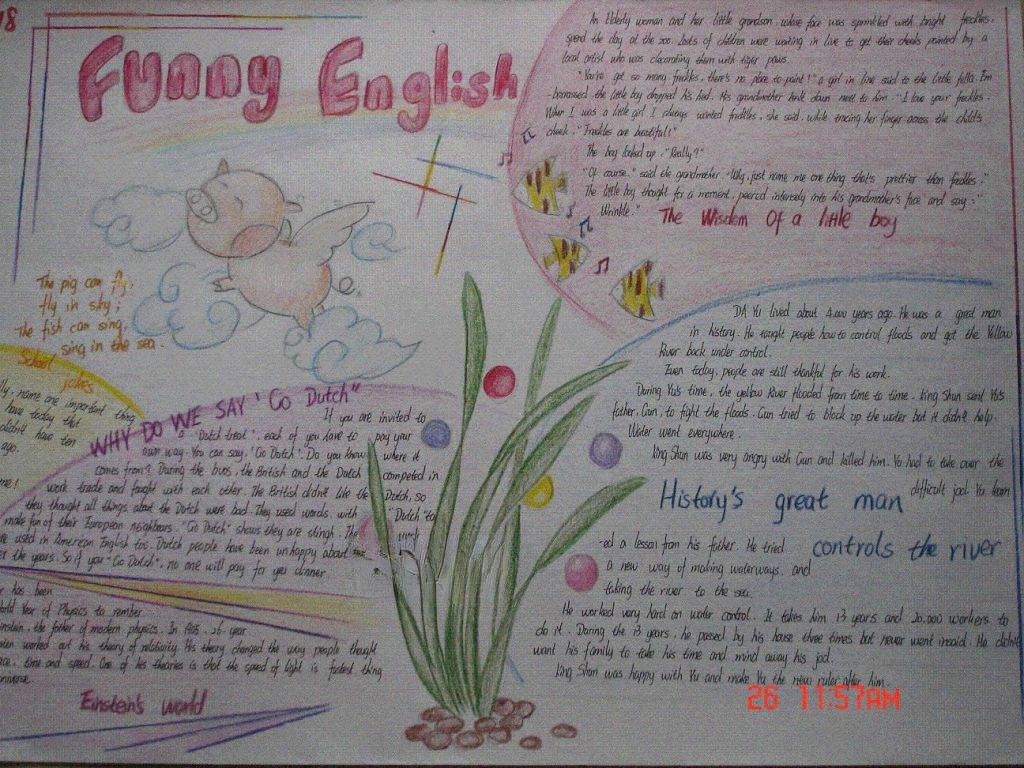 18
Funny English
An Elderly woman and her little grandson, whose face was sprinkled with bright freckles,
spend the day at the zoo. Lots of children were waiting in live to get their cheeks painted by a
local artist who was decorating them with tiger paws.
"You've got so many freckles, there's no place to paint!" a girl in line said to the little fella. Em
-barrassed the little boy dropped his head. His grandmother knelt down next to him. "I love your freckles.
When I was a little girl I always wanted freckles, she said, while tracing her finger across the child's
cheek. "Freckles are beautiful!"
The boy looked up. "Really?"
"Of course," said the grandmother. "Why, just name me one thing that's prettier than freckles."
The little boy thought for a moment, peered intensely into his grandmother's face and say:"
Wrinkle."
The Wisdom Of a little boy
The pig can fly,
fly in sky;
The fish can sing,
sing in the sea.
School jokes
name are important thing
have today that
didn't have ten
ago.
WHY DO WE SAY "Go Dutch"
If you are invited to
a "Dutch treat", each of you have to pay your
own way. You can say, "Go Dutch". Do you know where it
comes from? During the the British and the Dutch competed in
work trade and fought with each other. The British didn't like the Dutch, so
they thought all things about the Dutch were bad. They used words, with "Dutch" to
make fun of their European neighbours. "Go Dutch" shows they are stingh. The
used in American English too. Dutch people have been unhappy about
the years. So if you "Go Dutch", no one will pay for you dinner
has been
World Year of Physics to
Einstein, the father of modern physics. In 1905, 26-year
worked out his theory of relativity. His theory changed the way people thought
time and speed. One of his theories is that the speed of light is fastest thing
universe.
Einstein's world
DA Yu lived about 4,000 years ago. He was a great man
in history. He taught people how to control floods and got the Yellow
River back under control.
Even today, people are still thankful for his work.
During Yu's time, the yellow River flooded from time to time. King Shun sent Yu's
father, Gun, to fight the floods. Gun tried to block up the water but it didn't help.
Water went everywhere.
King Shun was very angry with Gun and killed him. Yu had to take over the
difficult job. Yu learn
History's great man
controls the river
-ed a lesson from his father. He tried
a new way of making waterways, and
taking the river to the sea.
He worked very hard on water control. It takes him 13 years and 20,000 workers to
do it. During the 13 years, he passed by his house three times but never went inside. He didn't
want his family to take his time and mind away his jod.
King Shun was happy with Yu and make Yu the new ruler after him.
26 11:57AM